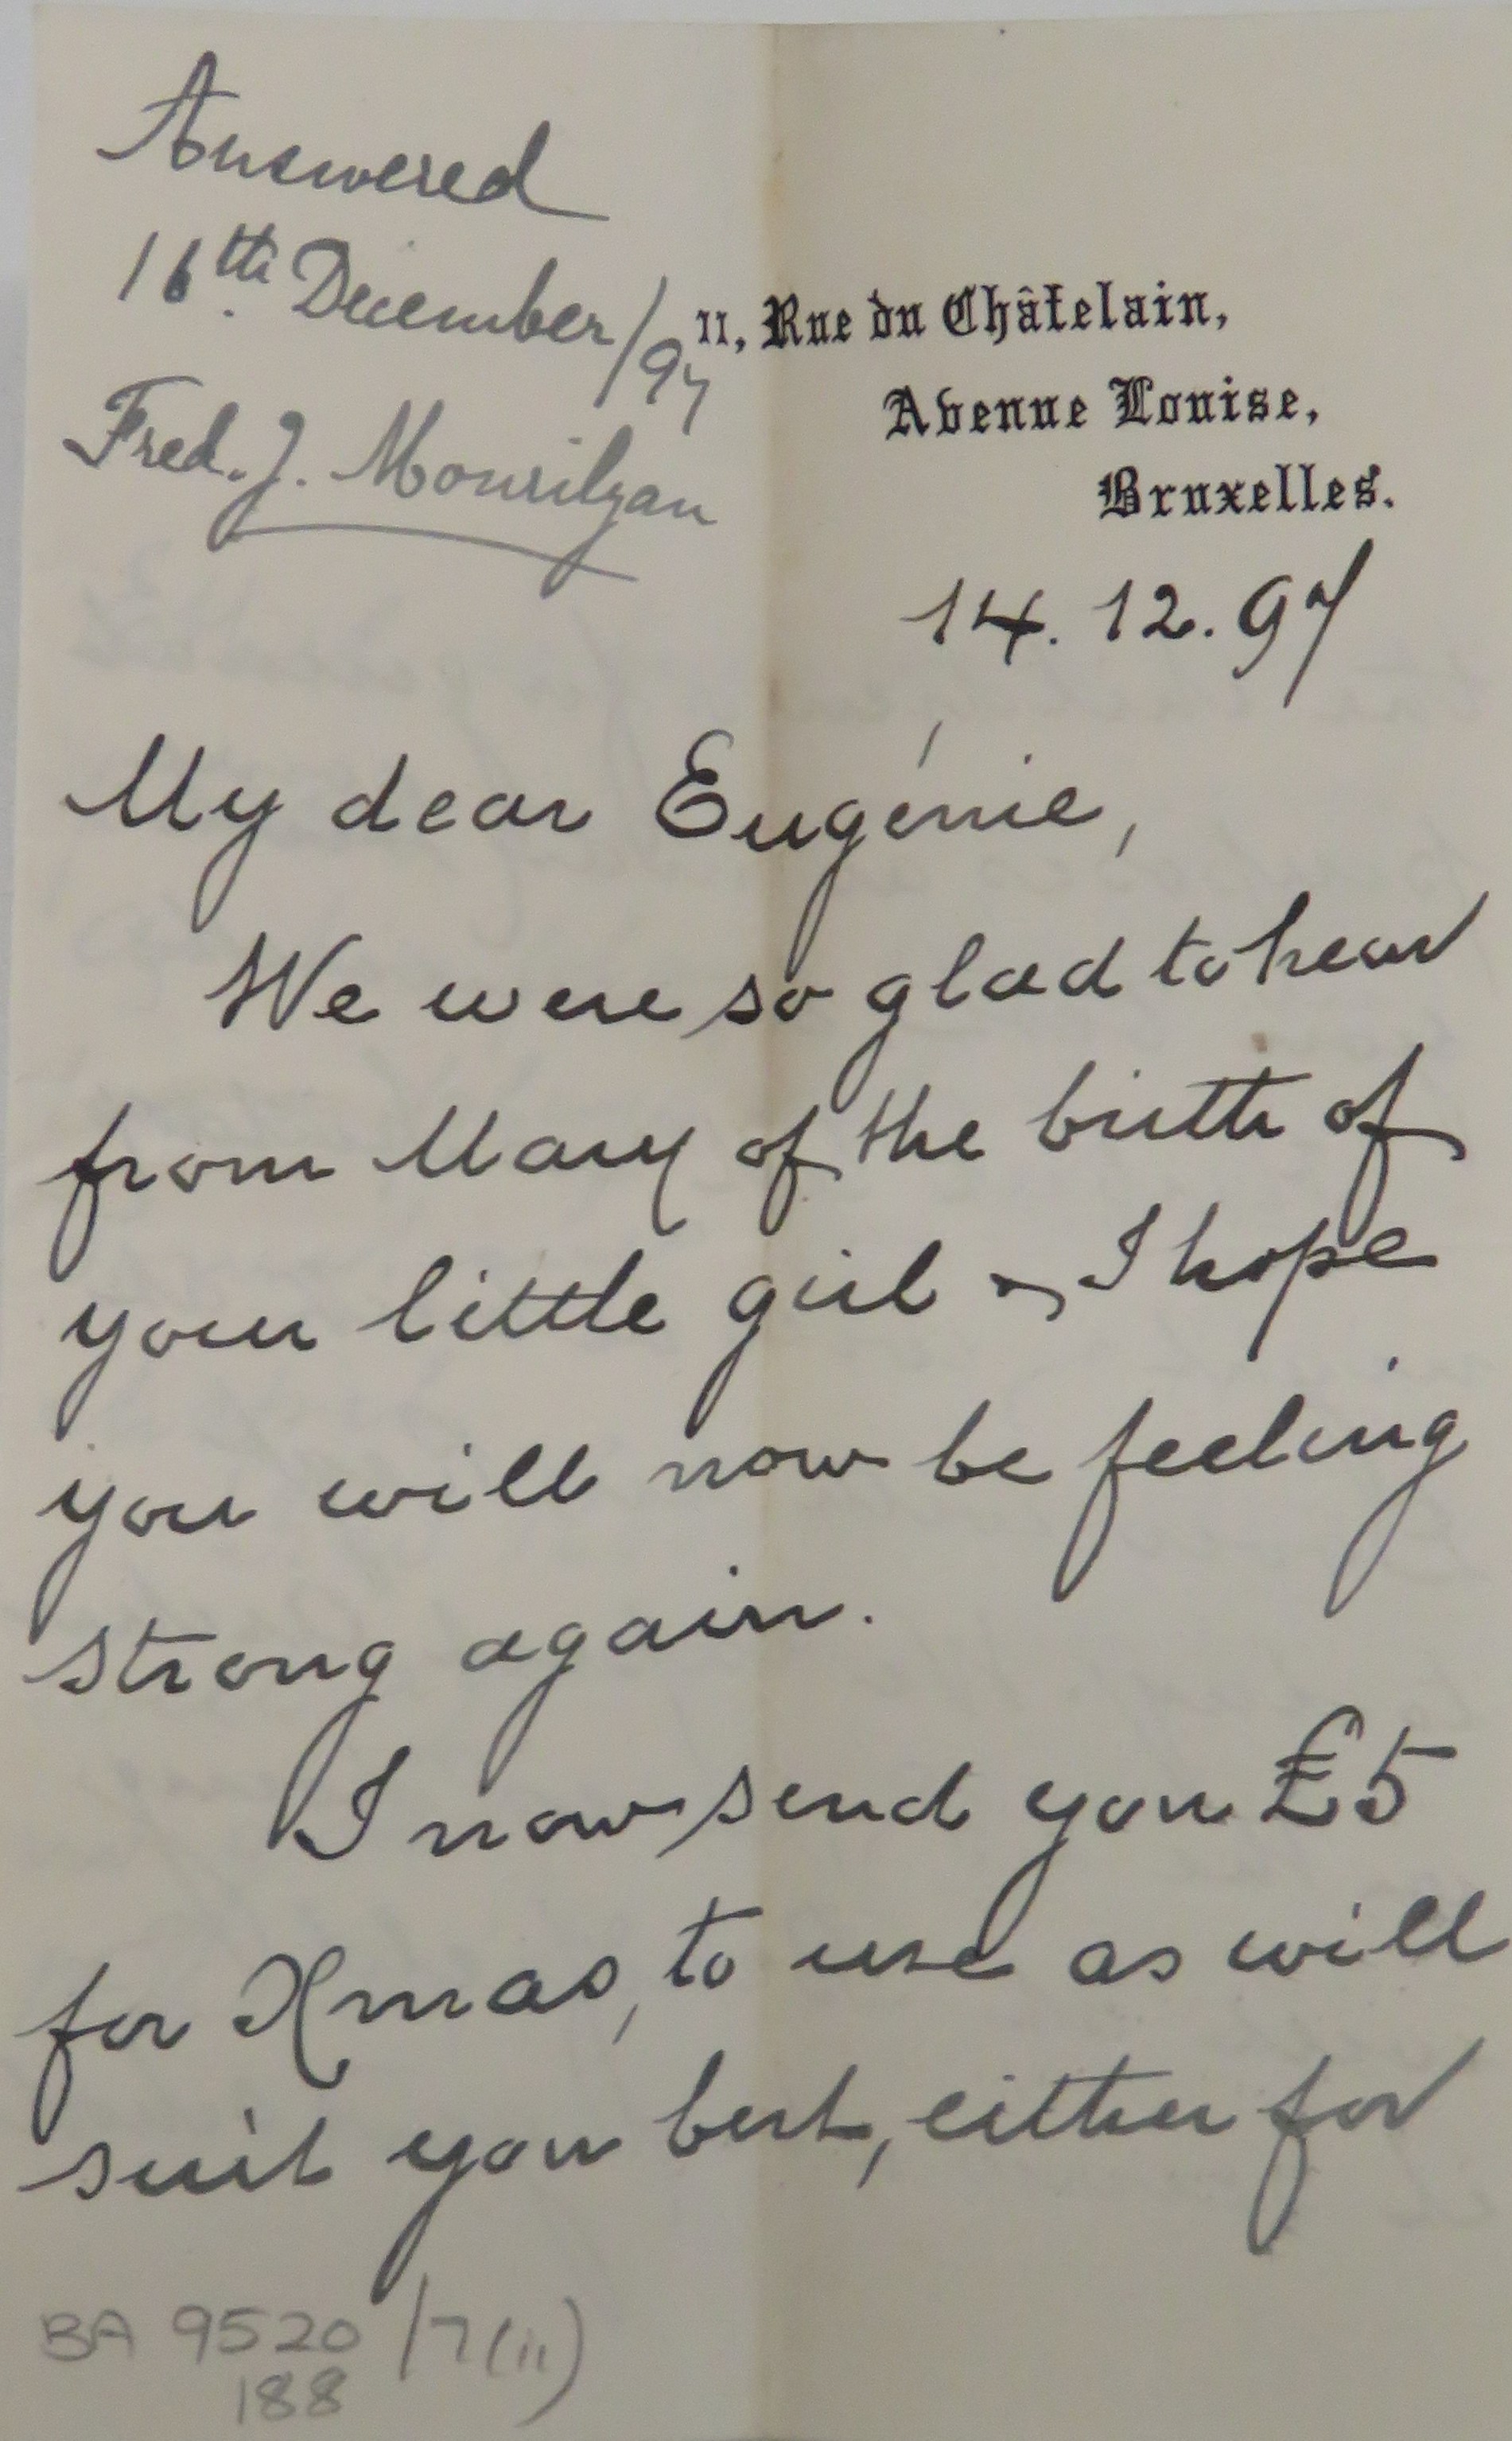 Answered
16th December/97
Fred. J. Mourilyan
11, Rue du Châtelain,
Avenue Louise,
Bruxelles.
14. 12. 97
My dear Eugénie,
We were so glad to hear
from Mary of the birth of
your little girl & I hope
you will now be feeling
strong again.
I now send you £5
for Xmas, to use as will
suit you best, either for
BA 9520/7(ii)
188